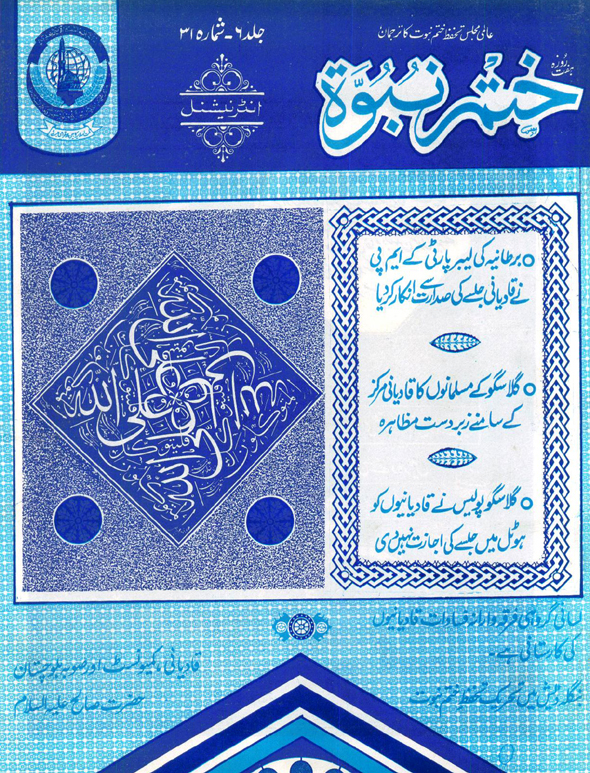 عالمی مجلس تحفظ ختم نبوت کا ترجمان
جلد ۶ - شمارہ ۳۱
ہفت روزہ
ختم نبوۃ
انٹرنیشنل
برطانیہ کی لیبر پارٹی کے ایم پی
نے قادیانی جلسے کی صدارت سے انکار کر دیا
گلاسگو کے مسلمانوں کا قادیانی مرکز
کے سامنے زبردست مظاہرہ
گلاسگو پولیس نے قادیانیوں کو
ہوٹل میں جلسے کی اجازت نہیں دی
لسانی گروہی فرقہ وارانہ فسادات قادیانیوں
کی کارستانی ہے۔
قادیانی، کمیونسٹ اور صوبہ بلوچستان
بنگلہ دیش میں تحریک تحفظ ختم نبوت
حضرت صالح علیہ السلام